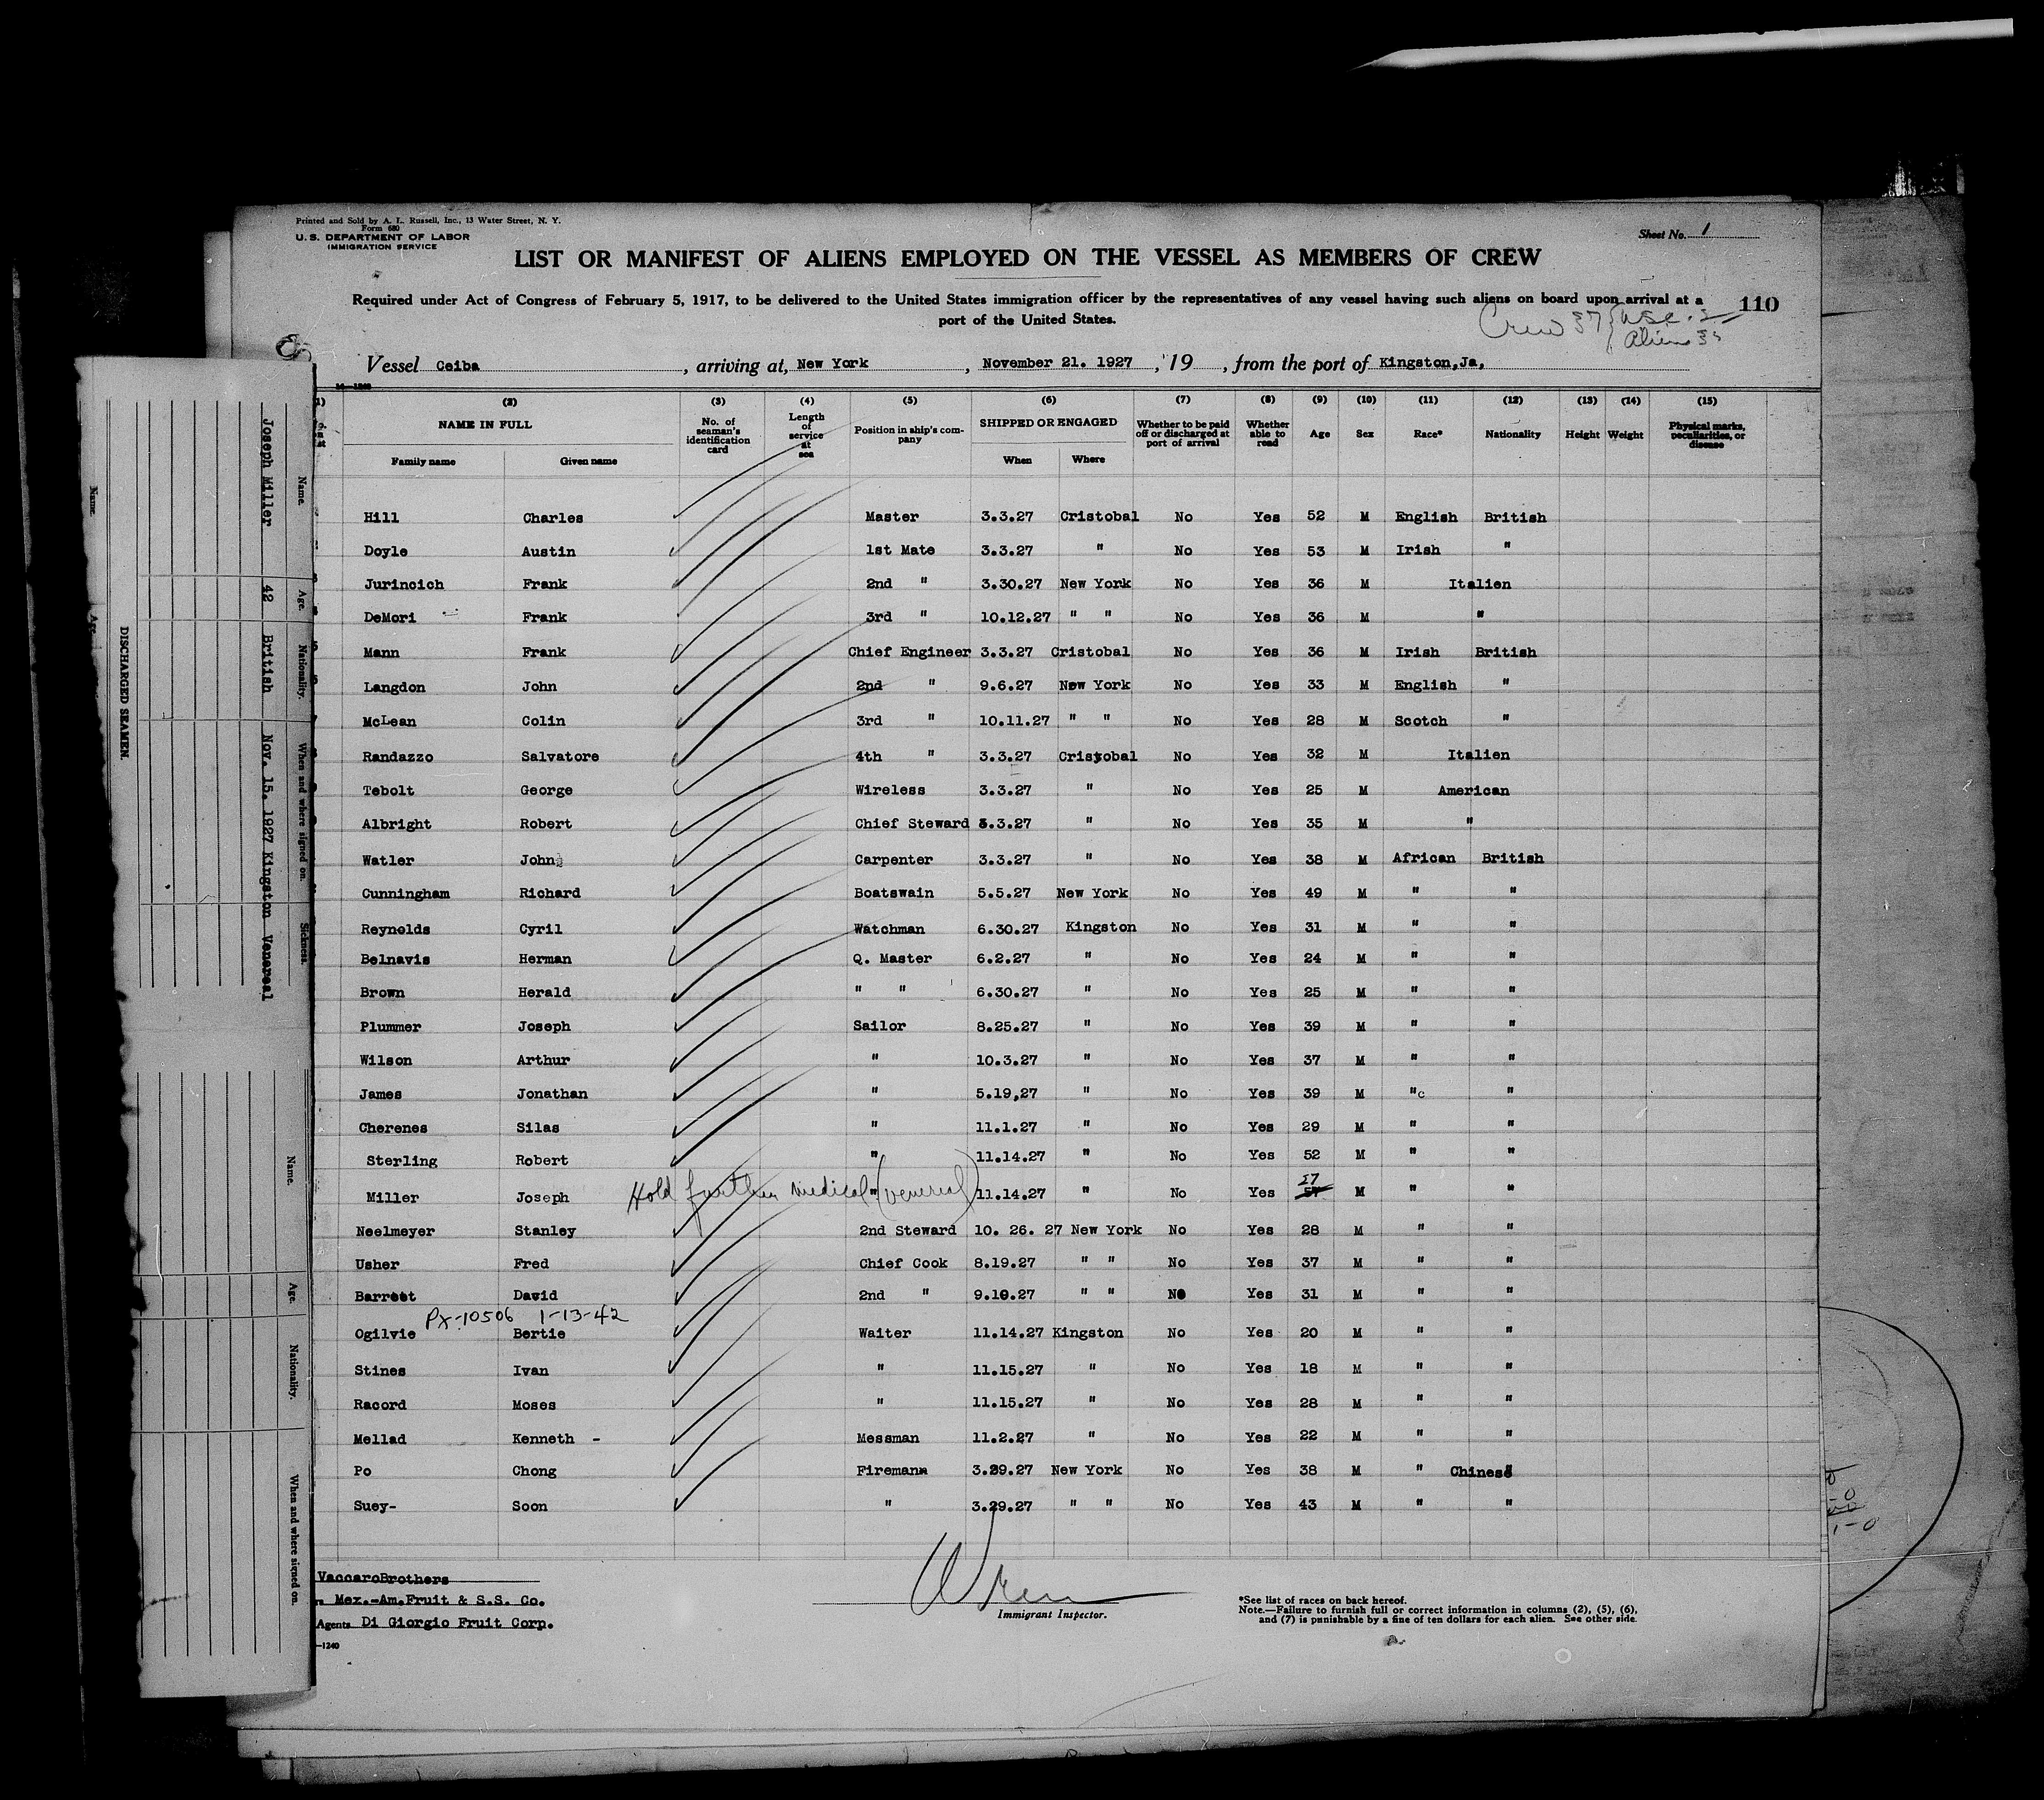 Printed and Sold by A. L. Russell, Inc., 13 Water Street, N. Y.
Form 680
U. S. DEPARTMENT OF LABOR
IMMIGRATION SERVICE
Sheet No. 1
LIST OR MANIFEST OF ALIENS EMPLOYED ON THE VESSEL AS MEMBERS OF CREW
Required under Act of Congress of February 5, 1917, to be delivered to the United States immigration officer by the representatives of any vessel having such aliens on board upon arrival at a
port of the United States.
110
Crew 37
Vessel Ceiba , arriving at, New York , November 21. 1927 , 19 , from the port of Kingston,Ja,
(2) (3) (4) (5) (6) (7) (8) (9) (10) (11) (12) (13) (14) (15)
NAME IN FULL No. of seaman's identification card Length of service at sea Position in ship's company SHIPPED OR ENGAGED Whether to be paid off or discharged at port of arrival Whether able to read Age Sex Race* Nationality Height Weight Physical marks, peculiarities, or disease
Family name Given name When Where
Hill Charles Master 3.3.27 Cristobal No Yes 52 M English British
Doyle Austin 1st Mate 3.3.27 " No Yes 53 M Irish "
Jurincich Frank 2nd " 3.30.27 New York No Yes 36 M Italien
DeMori Frank 3rd " 10.12.27 " " No Yes 36 M "
Mann Frank Chief Engineer 3.3.27 Cristobal No Yes 36 M Irish British
Langdon John 2nd " 9.6.27 New York No Yes 33 M English "
McLean Colin 3rd " 10.11.27 " " No Yes 28 M Scotch "
Randazzo Salvatore 4th " 3.3.27 Cristobal No Yes 32 M Italien
Tebolt George Wireless 3.3.27 " No Yes 25 M American
Albright Robert Chief Steward 3.3.27 " No Yes 35 M "
Watler John Carpenter 3.3.27 " No Yes 38 M African British
Cunningham Richard Boatswain 5.5.27 New York No Yes 49 M " "
Reynolds Cyril Watchman 6.30.27 Kingston No Yes 31 M " "
Belnavis Herman Q. Master 6.2.27 " No Yes 24 M " "
Brown Herald " " 6.30.27 " No Yes 25 M " "
Plummer Joseph Sailor 8.25.27 " No Yes 39 M " "
Wilson Arthur " 10.3.27 " No Yes 37 M " "
James Jonathan " 5.19,27 " No Yes 39 M "c "
Cherenes Silas " 11.1.27 " No Yes 29 M " "
Sterling Robert " 11.14.27 " No Yes 52 M " "
Miller Joseph Hold further medical " (venereal) 11.14.27 " No Yes 57 M " "
Neelmeyer Stanley 2nd Steward 10. 26. 27 New York No Yes 28 M " "
Usher Fred Chief Cook 8.19.27 " " No Yes 37 M " "
Barrett David 2nd " 9.10.27 " " No Yes 31 M " "
PX-10506 1-13-42
Ogilvie Bertie Waiter 11.14.27 Kingston No Yes 20 M " "
Stines Ivan " 11.15.27 " No Yes 18 M " "
Racord Moses " 11.15.27 " No Yes 28 M " "
Mellad Kenneth - Messman 11.2.27 " No Yes 22 M " "
Po Chong Fireman 3.29.27 New York No Yes 38 M " Chinese
Suey- Soon " 3.29.27 " " No Yes 43 M " "
VaccaroBrothers
Mex.-Am.Fruit & S.S. Co.
Agents Di Giorgio Fruit Corp.
—1240
Immigrant Inspector.
*See list of races on back hereof.
Note.—Failure to furnish full or correct information in columns (2), (5), (6),
and (7) is punishable by a fine of ten dollars for each alien. See other side.
DISCHARGED SEAMEN.
Name. Age. Nationality. When and where signed on. Sickness.
Joseph Miller 42 British Nov. 15. 1927 Kingston Venereal
Name. Age.
Name. Age. Nationality. When and where signed on.